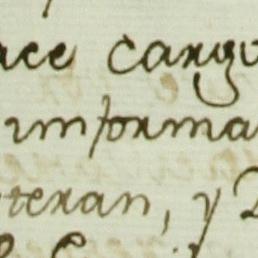 ace cargo
informa
teran, y